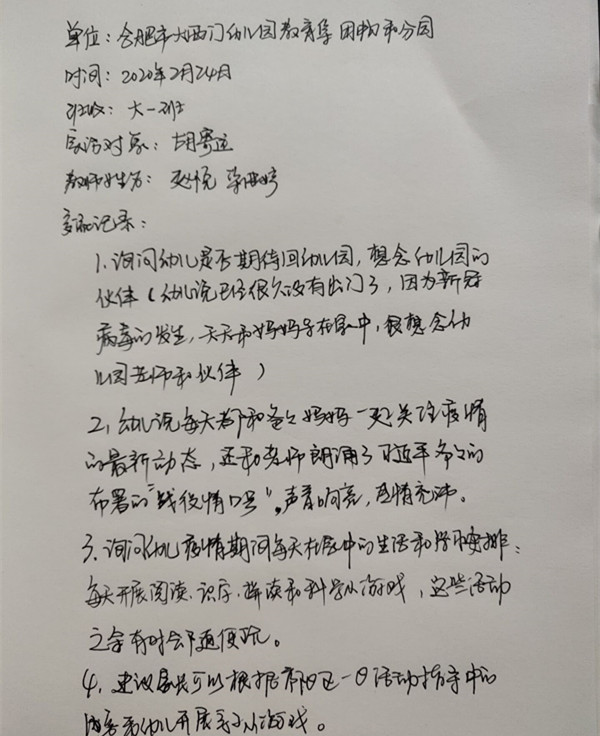 单位：合肥市大西门幼儿园教育集团柏和分园
时间：2020年2月24日
班级：大一班
家访对象：胡寄运
教师姓名：赵悦
交流记录：
1.询问幼儿是否期待回幼儿园，想念幼儿园的
伙伴（幼儿说已经很久没有出门了，因为新冠
病毒的发生，天天和妈妈等在家中，很想念幼
儿园老师和伙伴）
2.幼儿说每天都和爸爸妈妈一起关注疫情
的最新动态，还和老师朗诵了习近平爷爷的
布署的“战役情口号”，声音响亮，感情充沛。
3.询问幼儿疫情期间每天在家中的生活和学习安排：
每天开展阅读、识字、拼读和科学小游戏，这些活动
之余有时会下通便玩。
4.建议家长可以根据一日活动指导中的
内容和幼儿开展手小游戏。